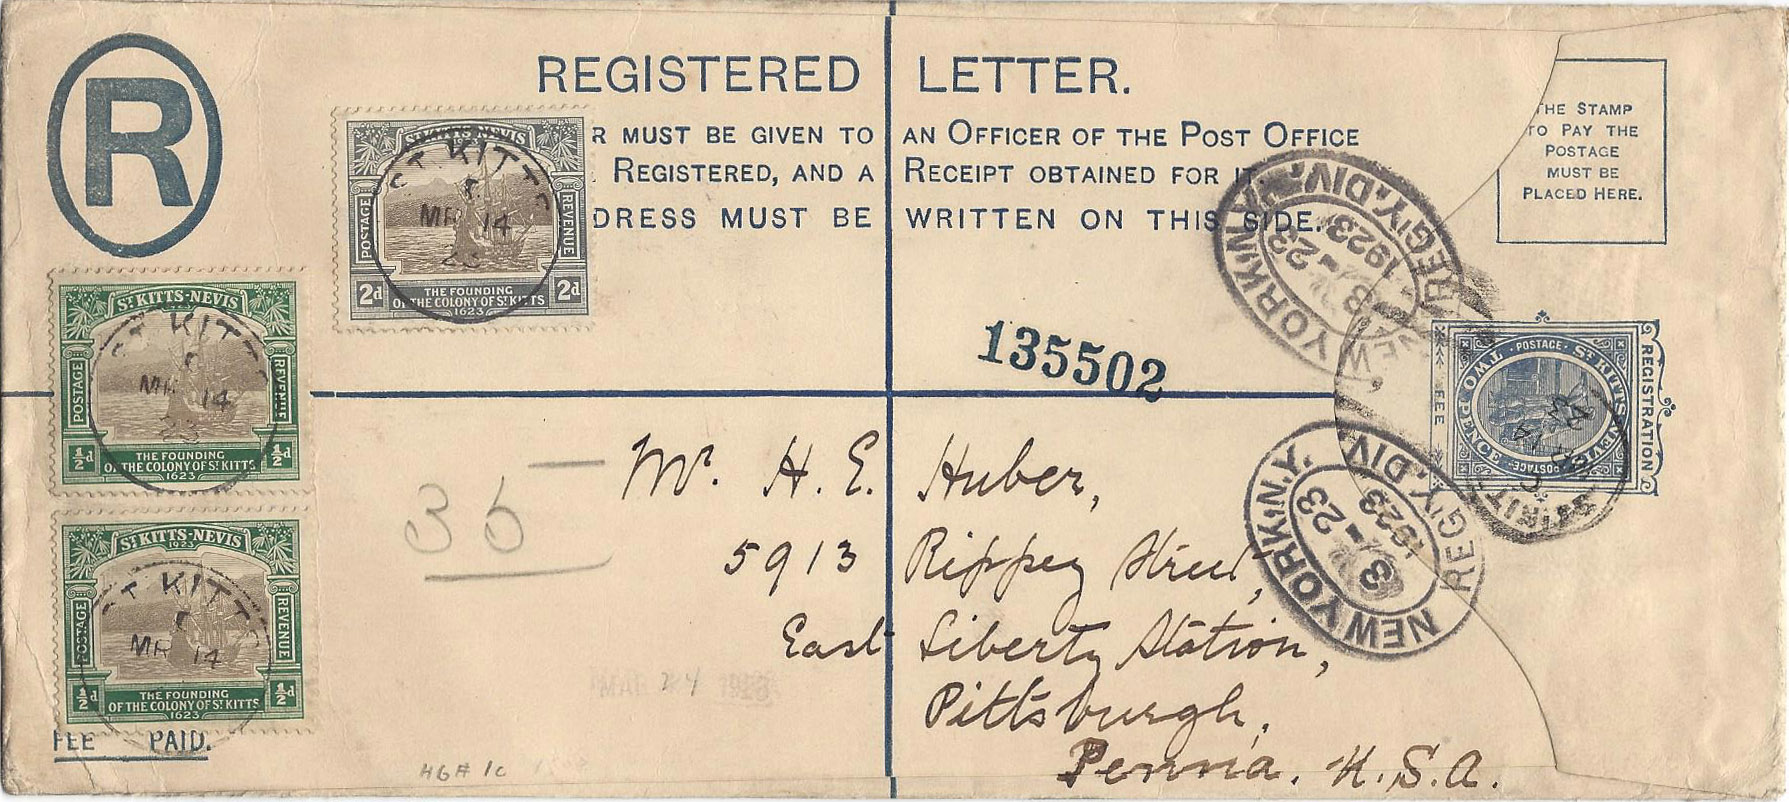 R
REGISTERED LETTER.
R MUST BE GIVEN TO AN OFFICER OF THE POST OFFICE
REGISTERED, AND A RECEIPT OBTAINED FOR IT
DRESS MUST BE WRITTEN ON THIS SIDE.
THE STAMP
TO PAY THE
POSTAGE
MUST BE
PLACED HERE.
ST KITTS-NEVIS
POSTAGE
REVENUE
2d THE FOUNDING 2d
OF THE COLONY OF ST KITTS
1623
ST KITTS
MR 14
23
ST KITTS-NEVIS
POSTAGE
REVENUE
½d THE FOUNDING ½d
OF THE COLONY OF ST KITTS
1623
ST KITTS
MR 14
23
ST KITTS-NEVIS
1923
POSTAGE
REVENUE
½d THE FOUNDING ½d
OF THE COLONY OF ST KITTS
1623
ST KITTS
MR 14
FEE PAID.
NEW YORK, N.Y. REG'Y. DIV.
3-23
1923
135502
REGISTRATION
FEE
POSTAGE
ST KITTS-NEVIS
TWO PENCE
POSTAGE
NEW YORK, N.Y. REG'Y. DIV.
3-23
1923
35
Mr. H. E. Huber,
5913 Rippey Street,
East Liberty Station,
Pittsburgh,
Penn'a. U.S.A.
MAR 24 1923
HG# 1c